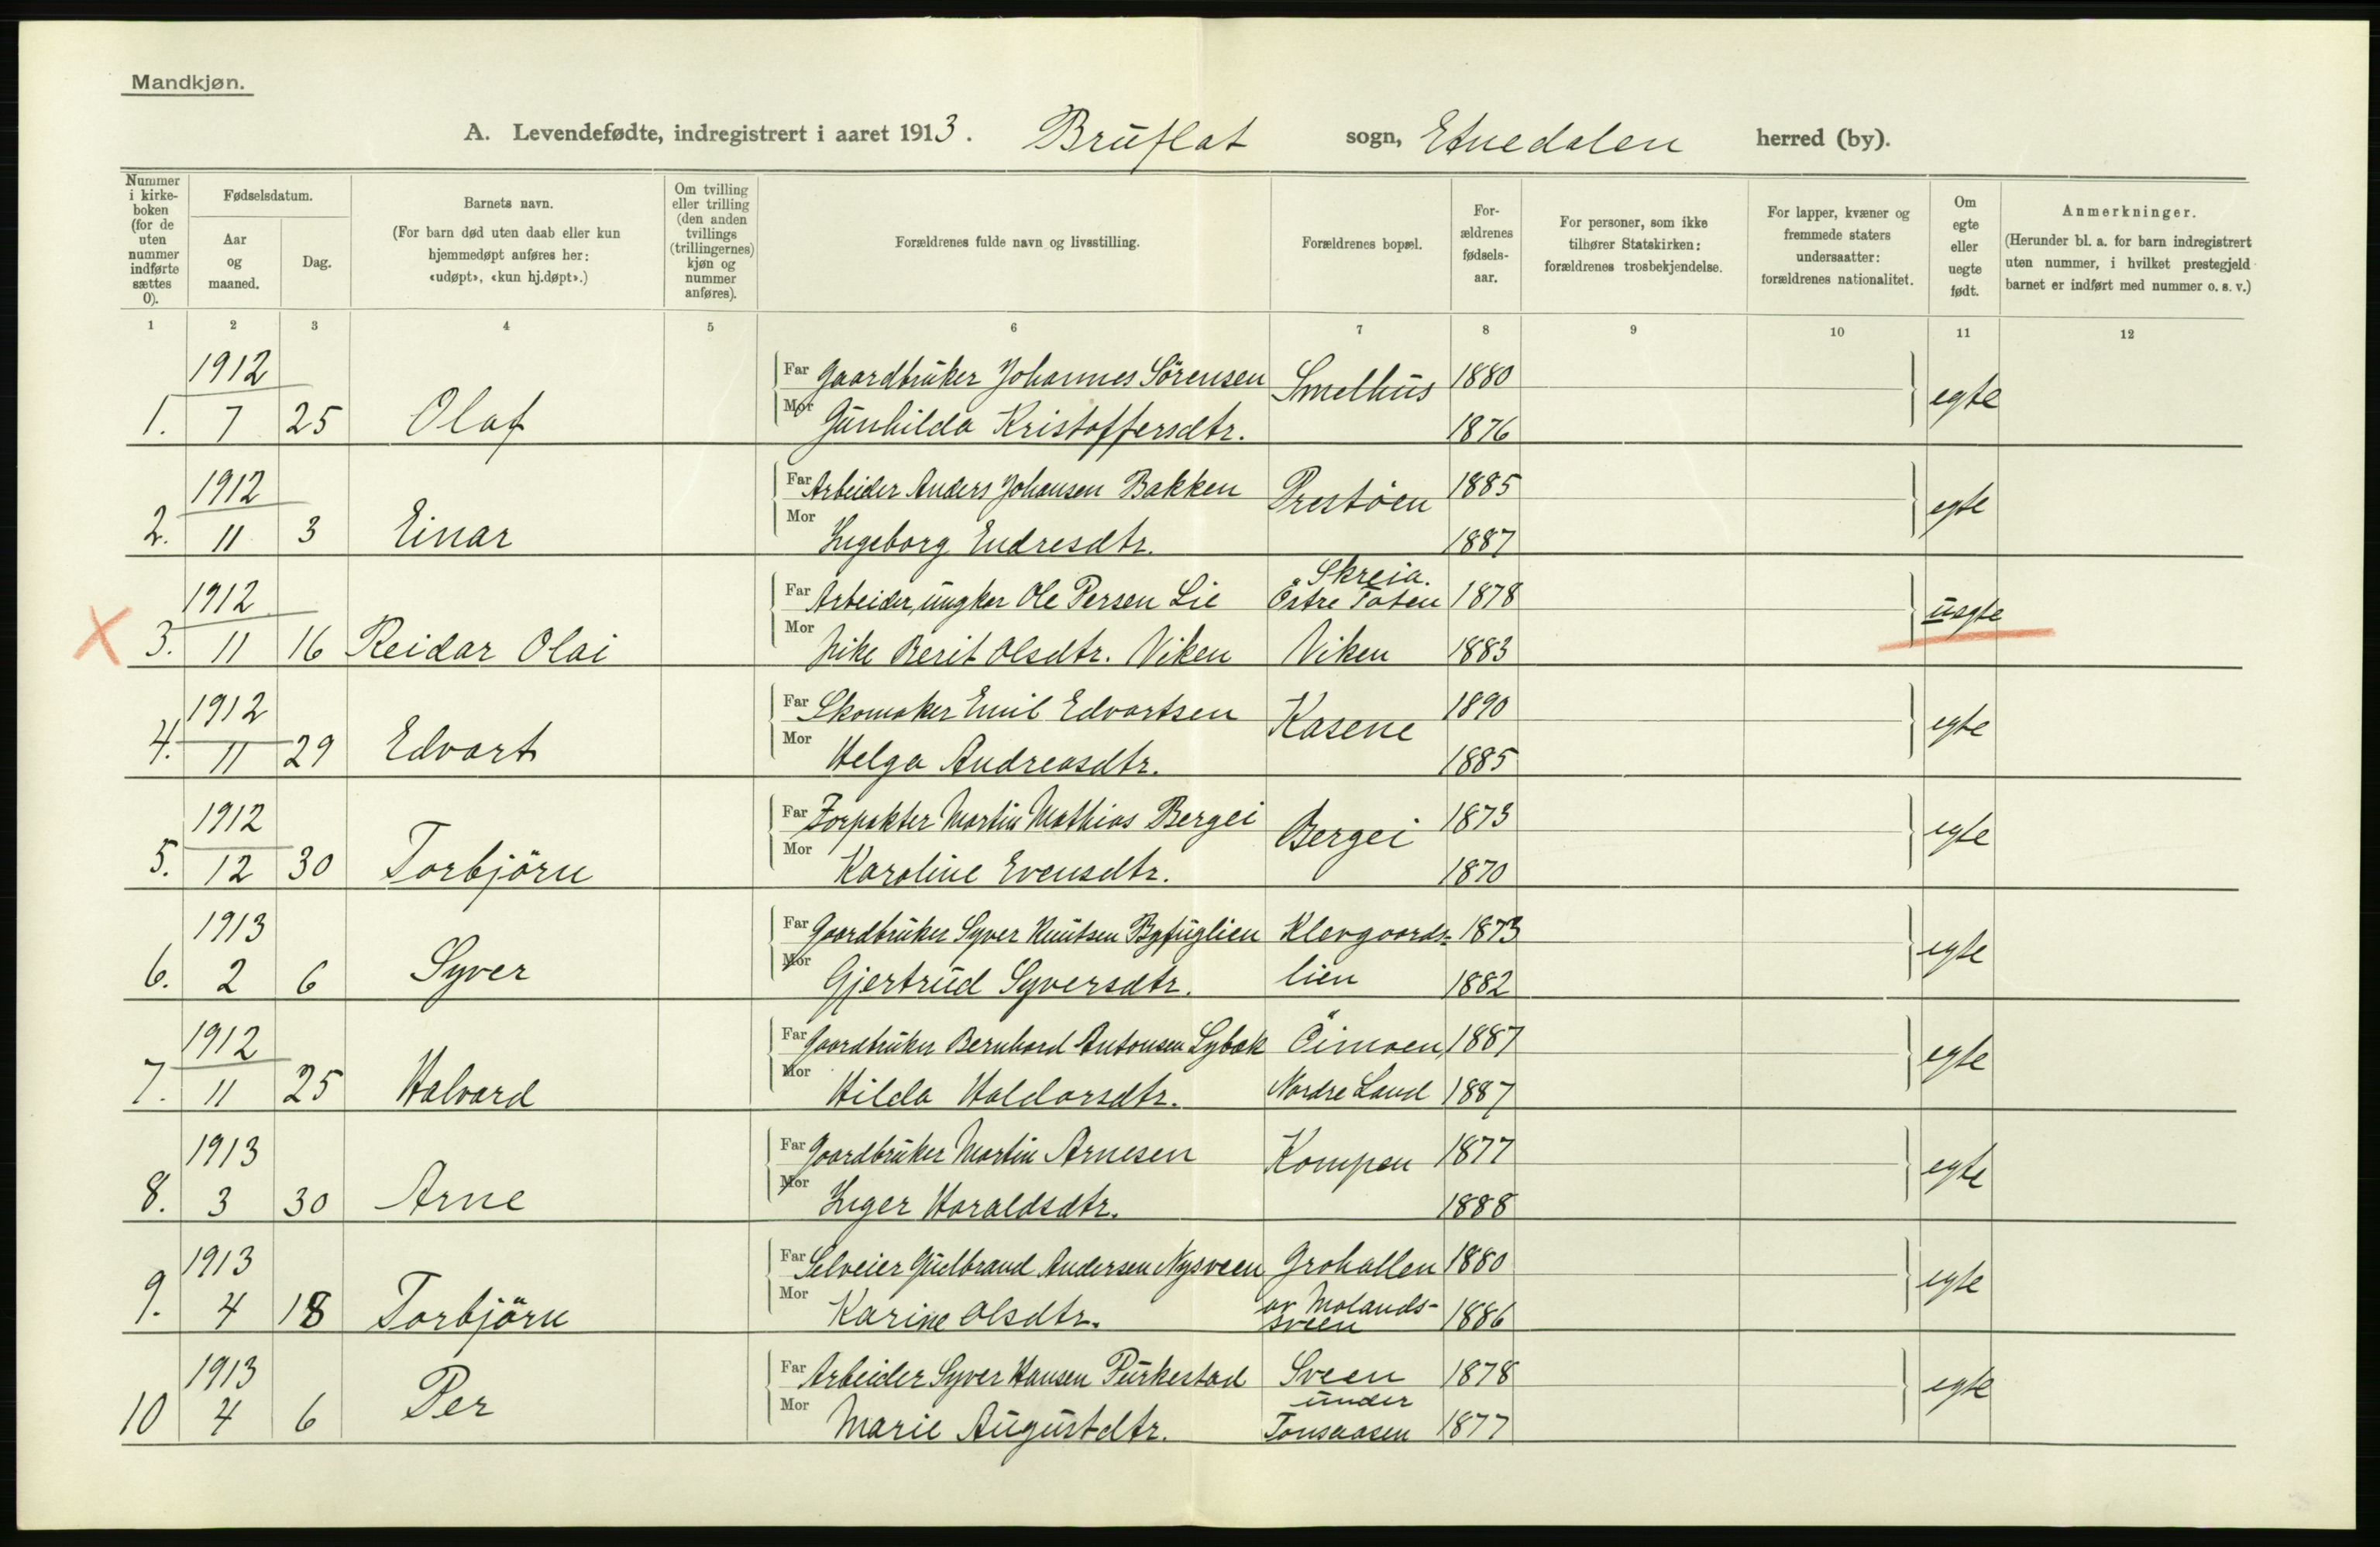 Mandkjøn.
A. Levendefødte, indregistrert i aaret 1913. Bruflat sogn, Etnedalen herred (by).
Nummer i kirke-boken (for de uten nummer indførte sættes 0).
Fødselsdatum.
Aar og maaned.
Dag.
Barnets navn.
(For barn død uten daab eller kun hjemmedøpt anføres her: «udøpt», «kun hj.døpt».)
Om tvilling eller trilling (den anden tvillings (trillingernes) kjøn og nummer anføres).
Forældrenes fulde navn og livsstilling.
Forældrenes bopæl.
For-ældrenes fødsels-aar.
For personer, som ikke tilhører Statskirken: forældrenes trosbekjendelse.
For lapper, kvæner og fremmede staters undersaatter: forældrenes nationalitet.
Om egte eller uegte født.
Anmerkninger.
(Herunder bl. a. for barn indregistrert uten nummer, i hvilket prestegjeld barnet er indført med nummer o. s. v.)
1 2 3 4 5 6 7 8 9 10 11 12
1912 Far Gaardbruker Johannes Sörensen Smelhus 1880 egte
1. 7 25 Olaf Mor Gunhilda Kristoffersdtr. 1876
1912 Far Arbeider Anders Johansen Bakken Prestöen 1885 egte
2. 11 3 Einar Mor Ingeborg Endresdtr. 1887
1912 Far Arbeider, ungkar Ole Persen Lie Skreia. Östre Toten 1878 uegte
X 3. 11 16 Reidar Olai Mor Pike Berit Olsdtr. Viken Viken 1883
1912 Far Skomaker Emil Edvartsen Kasene 1890 egte
4. 11 29 Edvart Mor Helga Andreasdtr. 1885
1912 Far Forpakter Martin Mathias Bergei Bergei 1873 egte
5. 12 30 Torbjörn Mor Karoline Evensdtr. 1870
1913 Far Gaardbruker Syver Knutsen Byfuglien Klevgaards- 1873 egte
6. 2 6 Syver Mor Gjertrud Syversdtr. lien 1882
1912 Far Gaardbruker Bernhard Antonsen Lybæk Öimoen, 1887 egte
7. 11 25 Halvard Mor Hilda Haldorsdtr. Nordre Land 1887
1913 Far Gaardbruker Martin Arnesen Kompen 1877 egte
8. 3 30 Arne Mor Inger Haraldsdtr. 1888
1913 Far Selveier Gudbrand Andersen Nysveen Grohallen 1880 egte
9. 4 18 Torbjörn Mor Karine Olsdtr. av Molands-sveen 1886
1913 Far Arbeider Syver Hansen Purkestad Sveen 1878 egte
10 4 6 Per Mor Marie Augustdtr. under Tonsaasen 1877